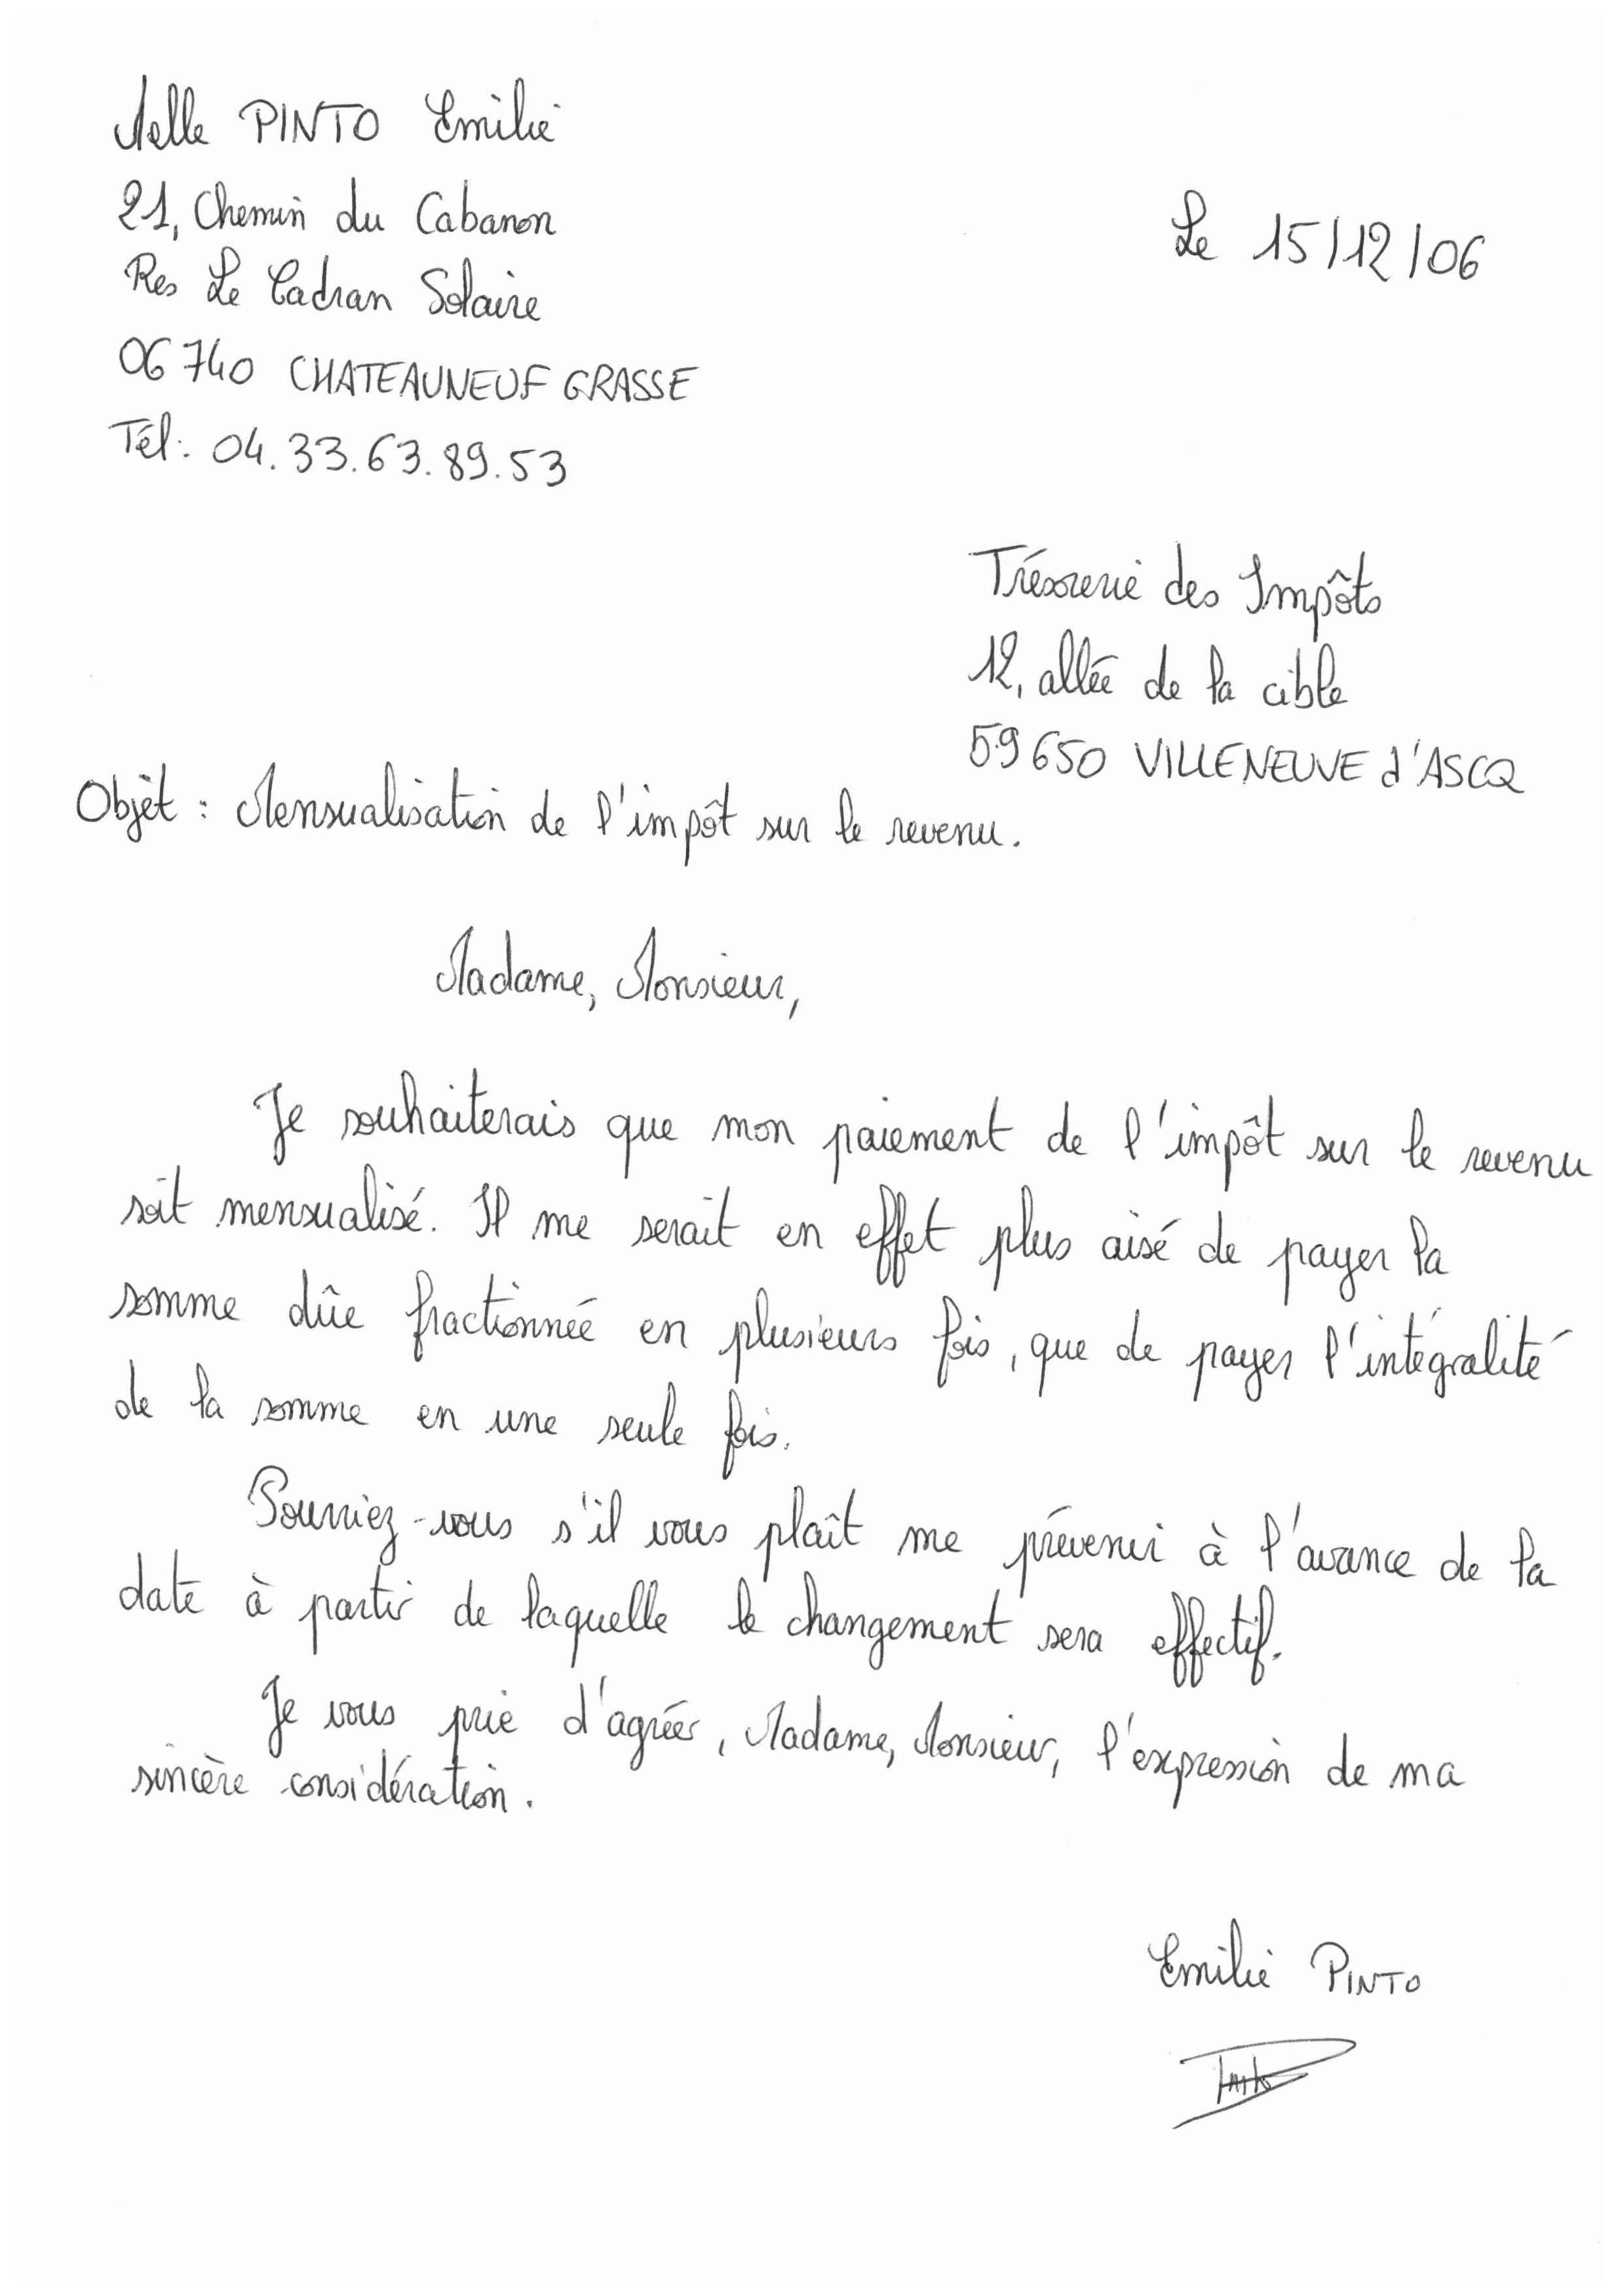 Melle PINTO Emilie
21, Chemin du Cabanon
Res Le Cadran Solaire
06740 CHATEAUNEUF GRASSE
Tél: 04.33.63.89.53
Le 15/12/06
Trésorerie des Impôts
12, allée de la cible
59650 VILLENEUVE d'ASCQ
Objet : Mensualisation de l'impôt sur le revenu.
Madame, Monsieur,
Je souhaiterais que mon paiement de l'impôt sur le revenu
soit mensualisé. Il me serait en effet plus aisé de payer la
somme dûe fractionnée en plusieurs fois, que de payer l'intégralité
de la somme en une seule fois.
Pourriez-vous s'il vous plaît me prévenir à l'avance de la
date à partir de laquelle le changement sera effectif.
Je vous prie d'agréer, Madame, Monsieur, l'expression de ma
sincère considération.
Emilie PINTO
Pinto